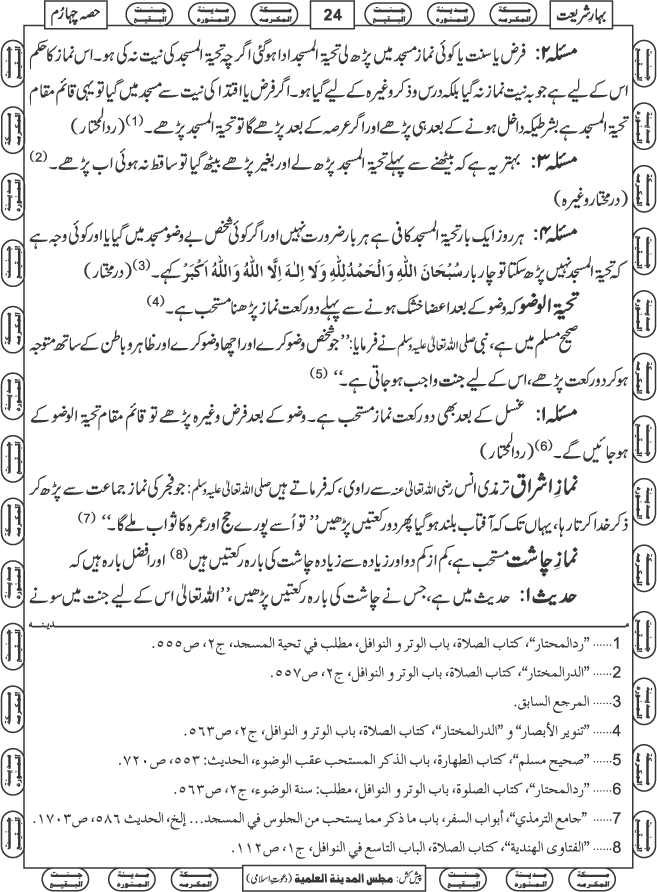 بہارِ شریعت
مکۃ المکرمہ
مدینۃ المنورہ
جنت البقیع
24
مکۃ المکرمہ
مدینۃ المنورہ
جنت البقیع
حصہ چہارم
مسئلہ ۲: فرض یا سنت یا کوئی نماز مسجد میں پڑھ لی تحیۃ المسجد ادا ہوگئی اگرچہ تحیۃ المسجد کی نیت نہ کی ہو۔ اس نماز کا حکم
اس کے لیے ہے جو بہ نیت نماز نہ گیا بلکہ درس و ذکر وغیرہ کے لیے گیا ہو۔ اگر فرض یا اقتدا کی نیت سے مسجد میں گیا تو یہی قائم مقام
تحیۃ المسجد ہے بشرطیکہ داخل ہونے کے بعد ہی پڑھے اور اگر عرصہ کے بعد پڑھے گا تو تحیۃ المسجد پڑھے۔ (1) (ردالمحتار)
مسئلہ ۳: بہتر یہ ہے کہ بیٹھنے سے پہلے تحیۃ المسجد پڑھ لے اور بغیر پڑھے بیٹھ گیا تو ساقط نہ ہوئی اب پڑھے۔ (2)
(درمختار وغیرہ)
مسئلہ ۴: ہر روز ایک بار تحیۃ المسجد کافی ہے ہر بار ضرورت نہیں اور اگر کوئی شخص بے وضو مسجد میں گیا یا اور کوئی وجہ ہے
کہ تحیۃ المسجد نہیں پڑھ سکتا تو چار بار سُبْحَانَ اللهِ وَالْحَمْدُلِلّٰهِ وَلَا اِلٰهَ اِلَّا اللهُ وَاللهُ اَكْبَرْ کہے۔ (3) (درمختار)
تحیۃ الوضو کہ وضو کے بعد اعضا خشک ہونے سے پہلے دو رکعت نماز پڑھنا مستحب ہے۔ (4)
صحیح مسلم میں ہے، نبی صلی اللہ تعالیٰ علیہ وسلم نے فرمایا: ’’جو شخص وضو کرے اور اچھا وضو کرے اور ظاہر و باطن کے ساتھ متوجہ
ہو کر دو رکعت پڑھے، اس کے لیے جنت واجب ہو جاتی ہے۔‘‘ (5)
مسئلہ ۱: غسل کے بعد بھی دو رکعت نماز مستحب ہے۔ وضو کے بعد فرض وغیرہ پڑھے تو قائم مقام تحیۃ الوضو کے
ہو جائیں گے۔ (6) (ردالمحتار)
نمازِ اشراق ترمذی انس رضی اللہ تعالیٰ عنہ سے راوی، کہ فرماتے ہیں صلی اللہ تعالیٰ علیہ وسلم: جو فجر کی نماز جماعت سے پڑھ کر
ذکر خدا کرتا رہا، یہاں تک کہ آفتاب بلند ہوگیا پھر دو رکعتیں پڑھیں’’ تو اُسے پورے حج اور عمرہ کا ثواب ملے گا۔‘‘ (7)
نمازِ چاشت مستحب ہے، کم از کم دو اور زیادہ سے زیادہ چاشت کی بارہ رکعتیں ہیں (8) اور افضل بارہ ہیں کہ
حدیث ۱: حدیث میں ہے، جس نے چاشت کی بارہ رکعتیں پڑھیں، ’’اللہ تعالیٰ اس کے لیے جنت میں سونے
مدینہ
1...... ”ردالمحتار“، كتاب الصلاة، باب الوتر و النوافل، مطلب في تحية المسجد، ج٢، ص٥٥٥.
2...... ”الدرالمختار“، كتاب الصلاة، باب الوتر و النوافل، ج٢، ص٥٥٧.
3...... المرجع السابق.
4...... ”تنوير الأبصار“ و ”الدرالمختار“، كتاب الصلاة، باب الوتر و النوافل، ج٢، ص٥٦٣.
5...... ”صحيح مسلم“، كتاب الطهارة، باب الذكر المستحب عقب الوضوء، الحديث: ٥٥٣، ص٧٢٠.
6...... ”ردالمحتار“، كتاب الصلوة، باب الوتر و النوافل، مطلب: سنة الوضوء، ج٢، ص٥٦٣.
7...... ”جامع الترمذي“، أبواب السفر، باب ما ذكر مما يستحب من الجلوس في المسجد... إلخ، الحديث ٥٨٦، ص١٧٠٣.
8...... ”الفتاوى الهندية“، كتاب الصلاة، الباب التاسع في النوافل، ج١، ص١١٢.
پیش کش: مجلس المدینة العلمیة (دعوتِ اسلامی)